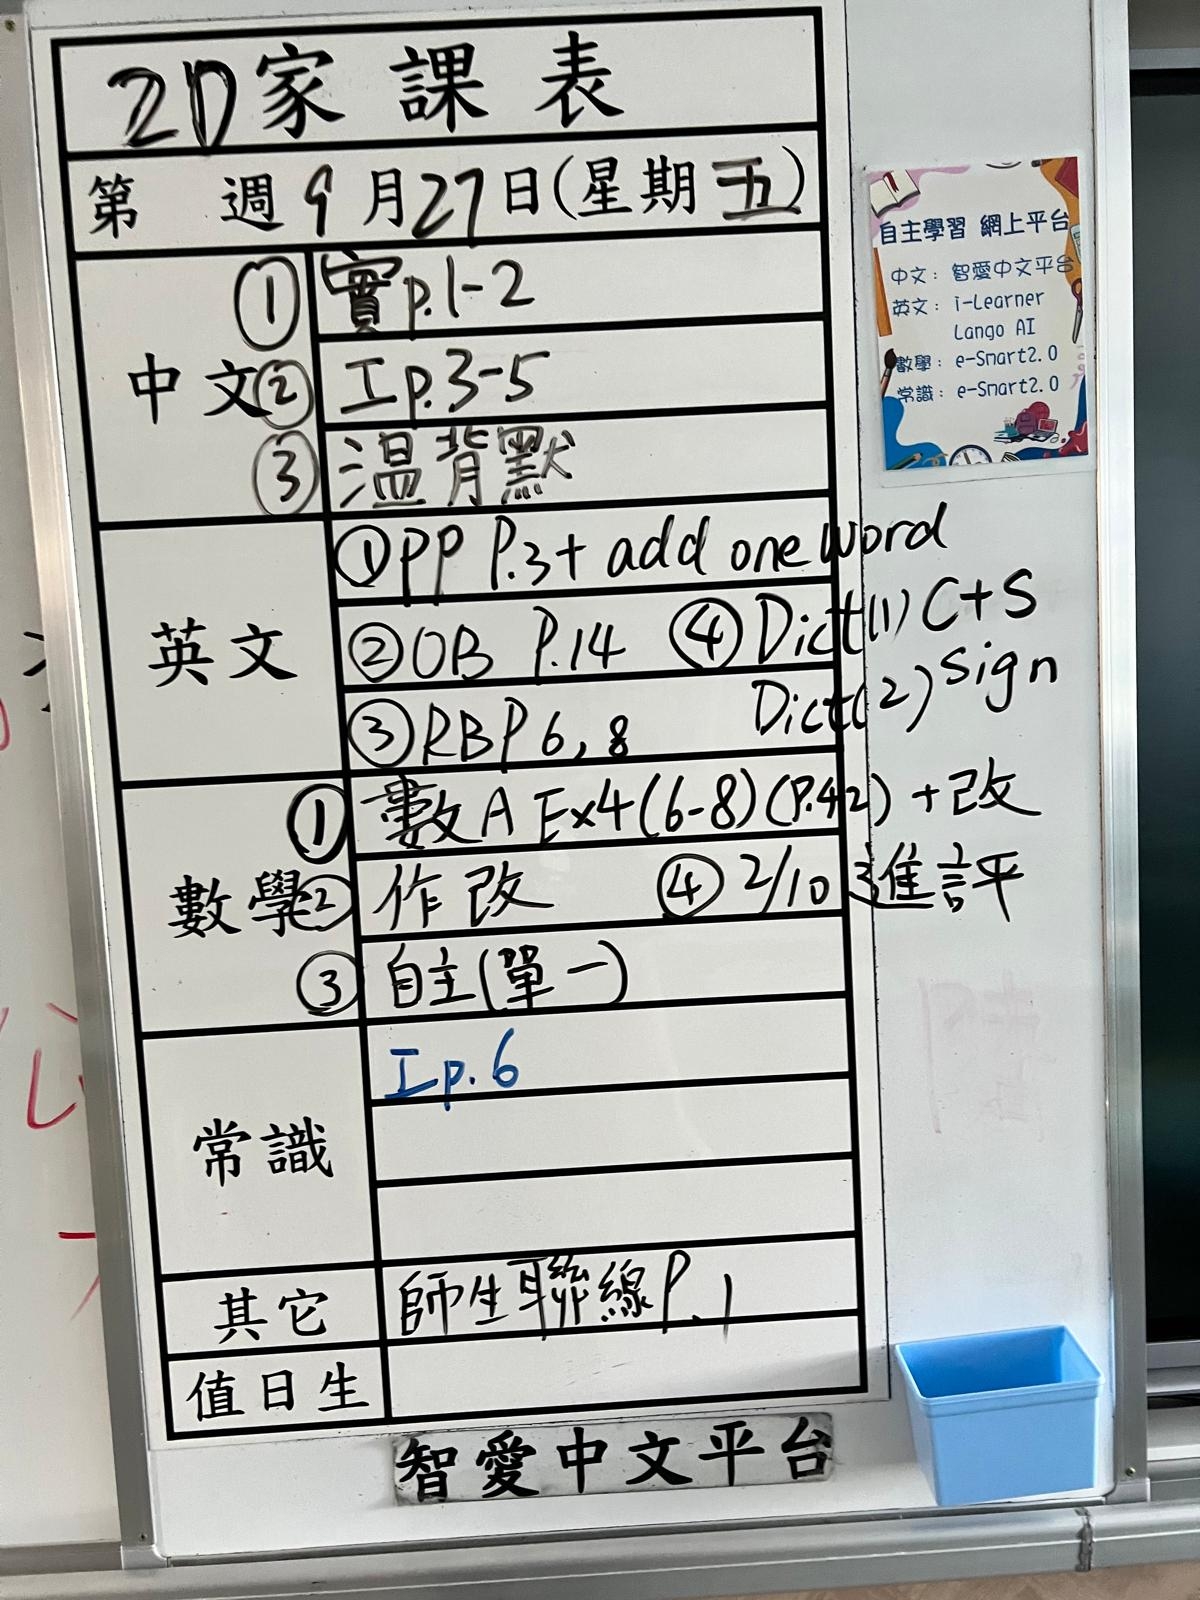 2D家課表
第 週9月27日(星期五)
中文
① 實p.1-2
② 工p.3-5
③ 溫背默
英文
① PP P.3 + add one word
② OB P.14 ④ Dict(1) C+S
Dict(2) sign
③ RB P 6, 8
數學
① 數A Ex4(6-8)(P.42) + 改
② 作改 ④ 2/10 進評
③ 自主(單一)
常識
工p.6
其它 師生聯線P.1
值日生
智愛中文平台
自主學習 網上平台
中文：智愛中文平台
英文：i-Learner
Lango AI
數學：e-Smart2.0
常識：e-Smart2.0